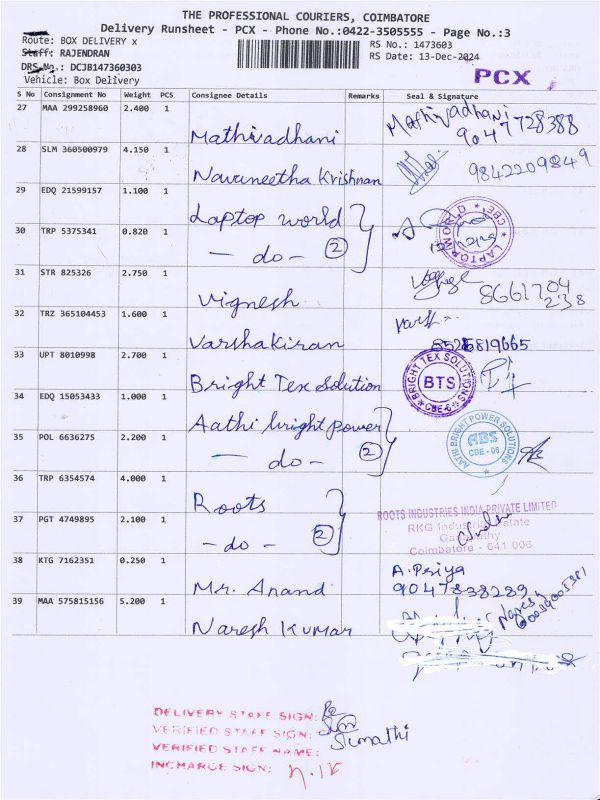 THE PROFESSIONAL COURIERS, COIMBATORE
Delivery Runsheet - PCX - Phone No.:0422-3505555 - Page No.:3
Route: BOX DELIVERY x
Staff: RAJENDRAN
DRS No.: DCJB147360303
Vehicle: Box Delivery
RS No.: 1473603
RS Date: 13-Dec-2024
PCX
S No Consignment No Weight PCS Consignee Details Remarks Seal & Signature
27 MAA 299258960 2.400 1 Mathivadhani Mathivadhani
9047728388
28 SLM 360500979 4.150 1 Navaneetha Krishnan 9842209849
29 EDQ 21599157 1.100 1 Laptop world
LAPTOP WORLD CBE
30 TRP 5375341 0.820 1 - do - 2
31 STR 825326 2.750 1 Vignesh 8661704
238
32 TRZ 365104453 1.600 1 Varshakiran
33 UPT 8010998 2.700 1 Bright Tex Solution
BRIGHT TEX SOLUTIONS
BTS
34 EDQ 15053433 1.000 1 Aathi bright power
AATHI BRIGHT POWER SOLUTIONS
ABS
CBE - 06
35 POL 6636275 2.200 1 - do - 2
36 TRP 6354574 4.000 1 Roots
ROOTS INDUSTRIES INDIA PRIVATE LIMITED
RKG Industrial Estate
Coimbatore - 641 006
37 PGT 4749895 2.100 1 - do - 2
38 KTG 7162351 0.250 1 Mr. Anand A. Priya
9047838289
39 MAA 575815156 5.200 1 Naresh Kumar
Naresh
DELIVERY STAFF SIGN:
VERIFIED STAFF SIGN:
VERIFIED STAFF NAME: Sumathi
INCHARGE SIGN: